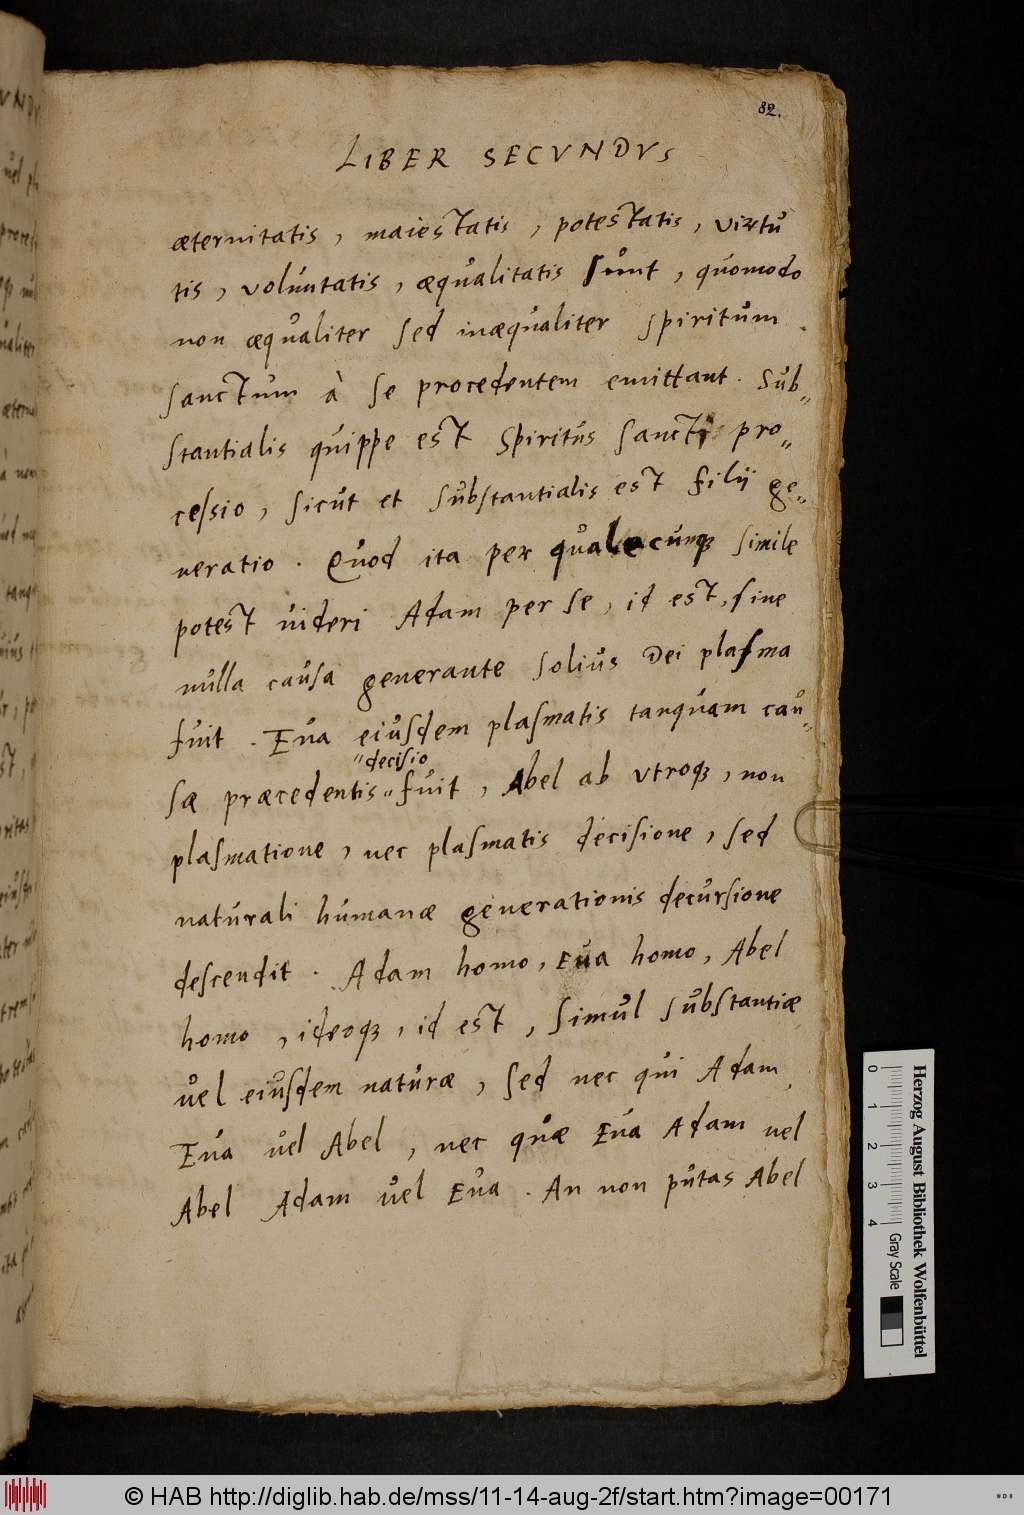 82.
LIBER SECVNDVS
æternitatis, maiestatis, potestatis, virtu
tis, voluntatis, æqualitatis sunt, quomodo
non æqualiter sed inæqualiter spiritum
sanctum à se procedentem emittant. Sub„
stantialis quippe est Spiritus sancti pro„
cessio, sicut et substantialis est filij ge„
neratio. Quod ita per qualecunqꝫ simile
potest uideri Adam per se, id est, sine
nulla causa generante solius Dei plasma
fuit. Eua eiusdem plasmatis tanquam cau„
„decisio
sæ præcedentis„ fuit, Abel ab vtroqꝫ, non
plasmatione, nec plasmatis decisione, sed
naturali humanæ generationis decursione
descendit. Adam homo, Eua homo, Abel
homo, ideoqꝫ, id est, simul substantiæ
uel eiusdem naturæ, sed nec qui Adam,
Eua uel Abel, nec quæ Eua Adam uel
Abel Adam uel Eua. An non putas Abel
Herzog August Bibliothek Wolfenbüttel
0 1 2 3 4
Gray Scale
© HAB http://diglib.hab.de/mss/11-14-aug-2f/start.htm?image=00171